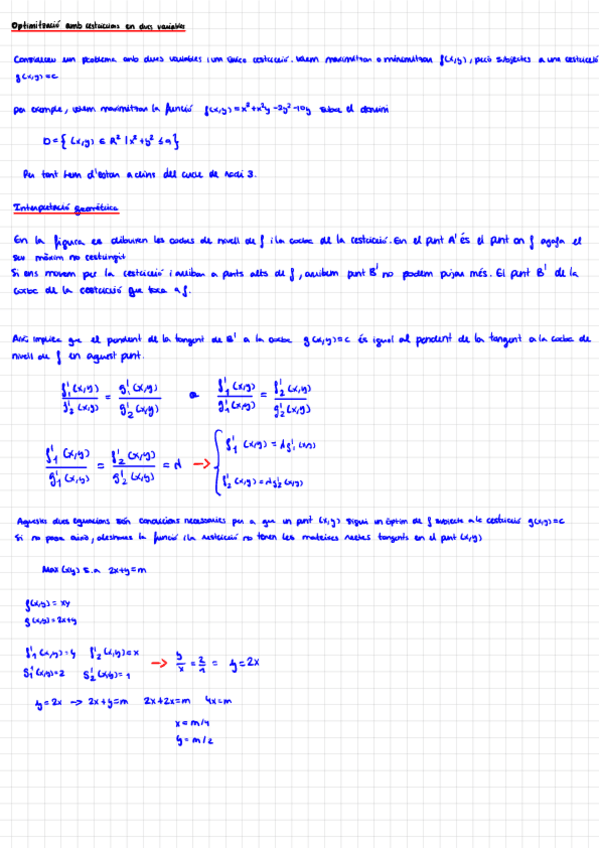 Optimització amb restriccions en dues variables
Considereu un problema amb dues variables i una única restricció. Volem maximitzar o minimitzar f(x,y), però subjectes a una restricció
g(x,y)=c
per exemple, volem maximitzar la funció f(x,y)=x²+x²y-2y²-10y sobre el domini
D={(x,y) ∈ R² | x²+y² ≤ 9}
Per tant hem d'estar a dins del cercle de radi 3.
Interpretació geomètrica
En la figura es dibuixen les corbes de nivell de f i la corba de la restricció. En el punt A' és el punt on f agafa el
seu màxim no restringit
Si ens movem per la restricció i arriben a punts alts de f, arribem punt B' no podem pujar més. El punt B' de la
corba de la restricció que toca a f.
Això implica que el pendent de la tangent de B' a la corba g(x,y)=c és igual al pendent de la tangent a la corba de
nivell de f en aquest punt.
f'1(x,y)/f'2(x,y) = g'1(x,y)/g'2(x,y) o f'1(x,y)/g'1(x,y) = f'2(x,y)/g'2(x,y)
f'1(x,y)/g'1(x,y) = f'2(x,y)/g'2(x,y) = λ → { f'1(x,y)=λg'1(x,y)
f'2(x,y)=λg'2(x,y)
Aquestes dues equacions són condicions necessaries per a que un punt (x,y) sigui un òptim de f subjecte a la restricció g(x,y)=c
Si no passa això, aleshores la funció i la restricció no tenen les mateixes rectes tangents en el punt (x,y)
Max(xy) s.a 2x+y=m
f(x,y)=xy
g(x,y)=2x+y
f'1(x,y)=y f'2(x,y)=x
g'1(x,y)=2 g'2(x,y)=1 → y/x = 2/1 = y=2x
y=2x → 2x+y=m 2x+2x=m 4x=m
x=m/4
y=m/2